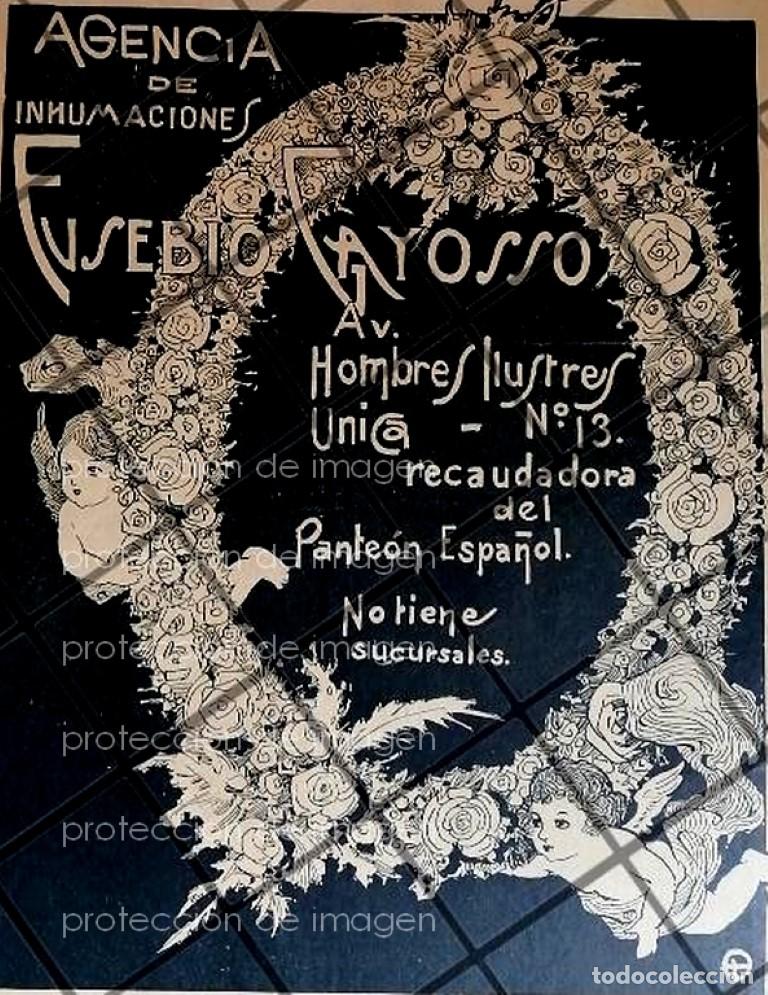 AGENCiA
DE
INHUMACIONES
EUSEBIO GAYOSSO
Av.
Hombres Ilustres
Unica - Nº 13.
recaudadora
del
Panteón Español.
No tiene
sucursales.
protección de imagen
protección de imagen
protección de imagen
protección de imagen
protección de imagen
protección de imagen
todocolección